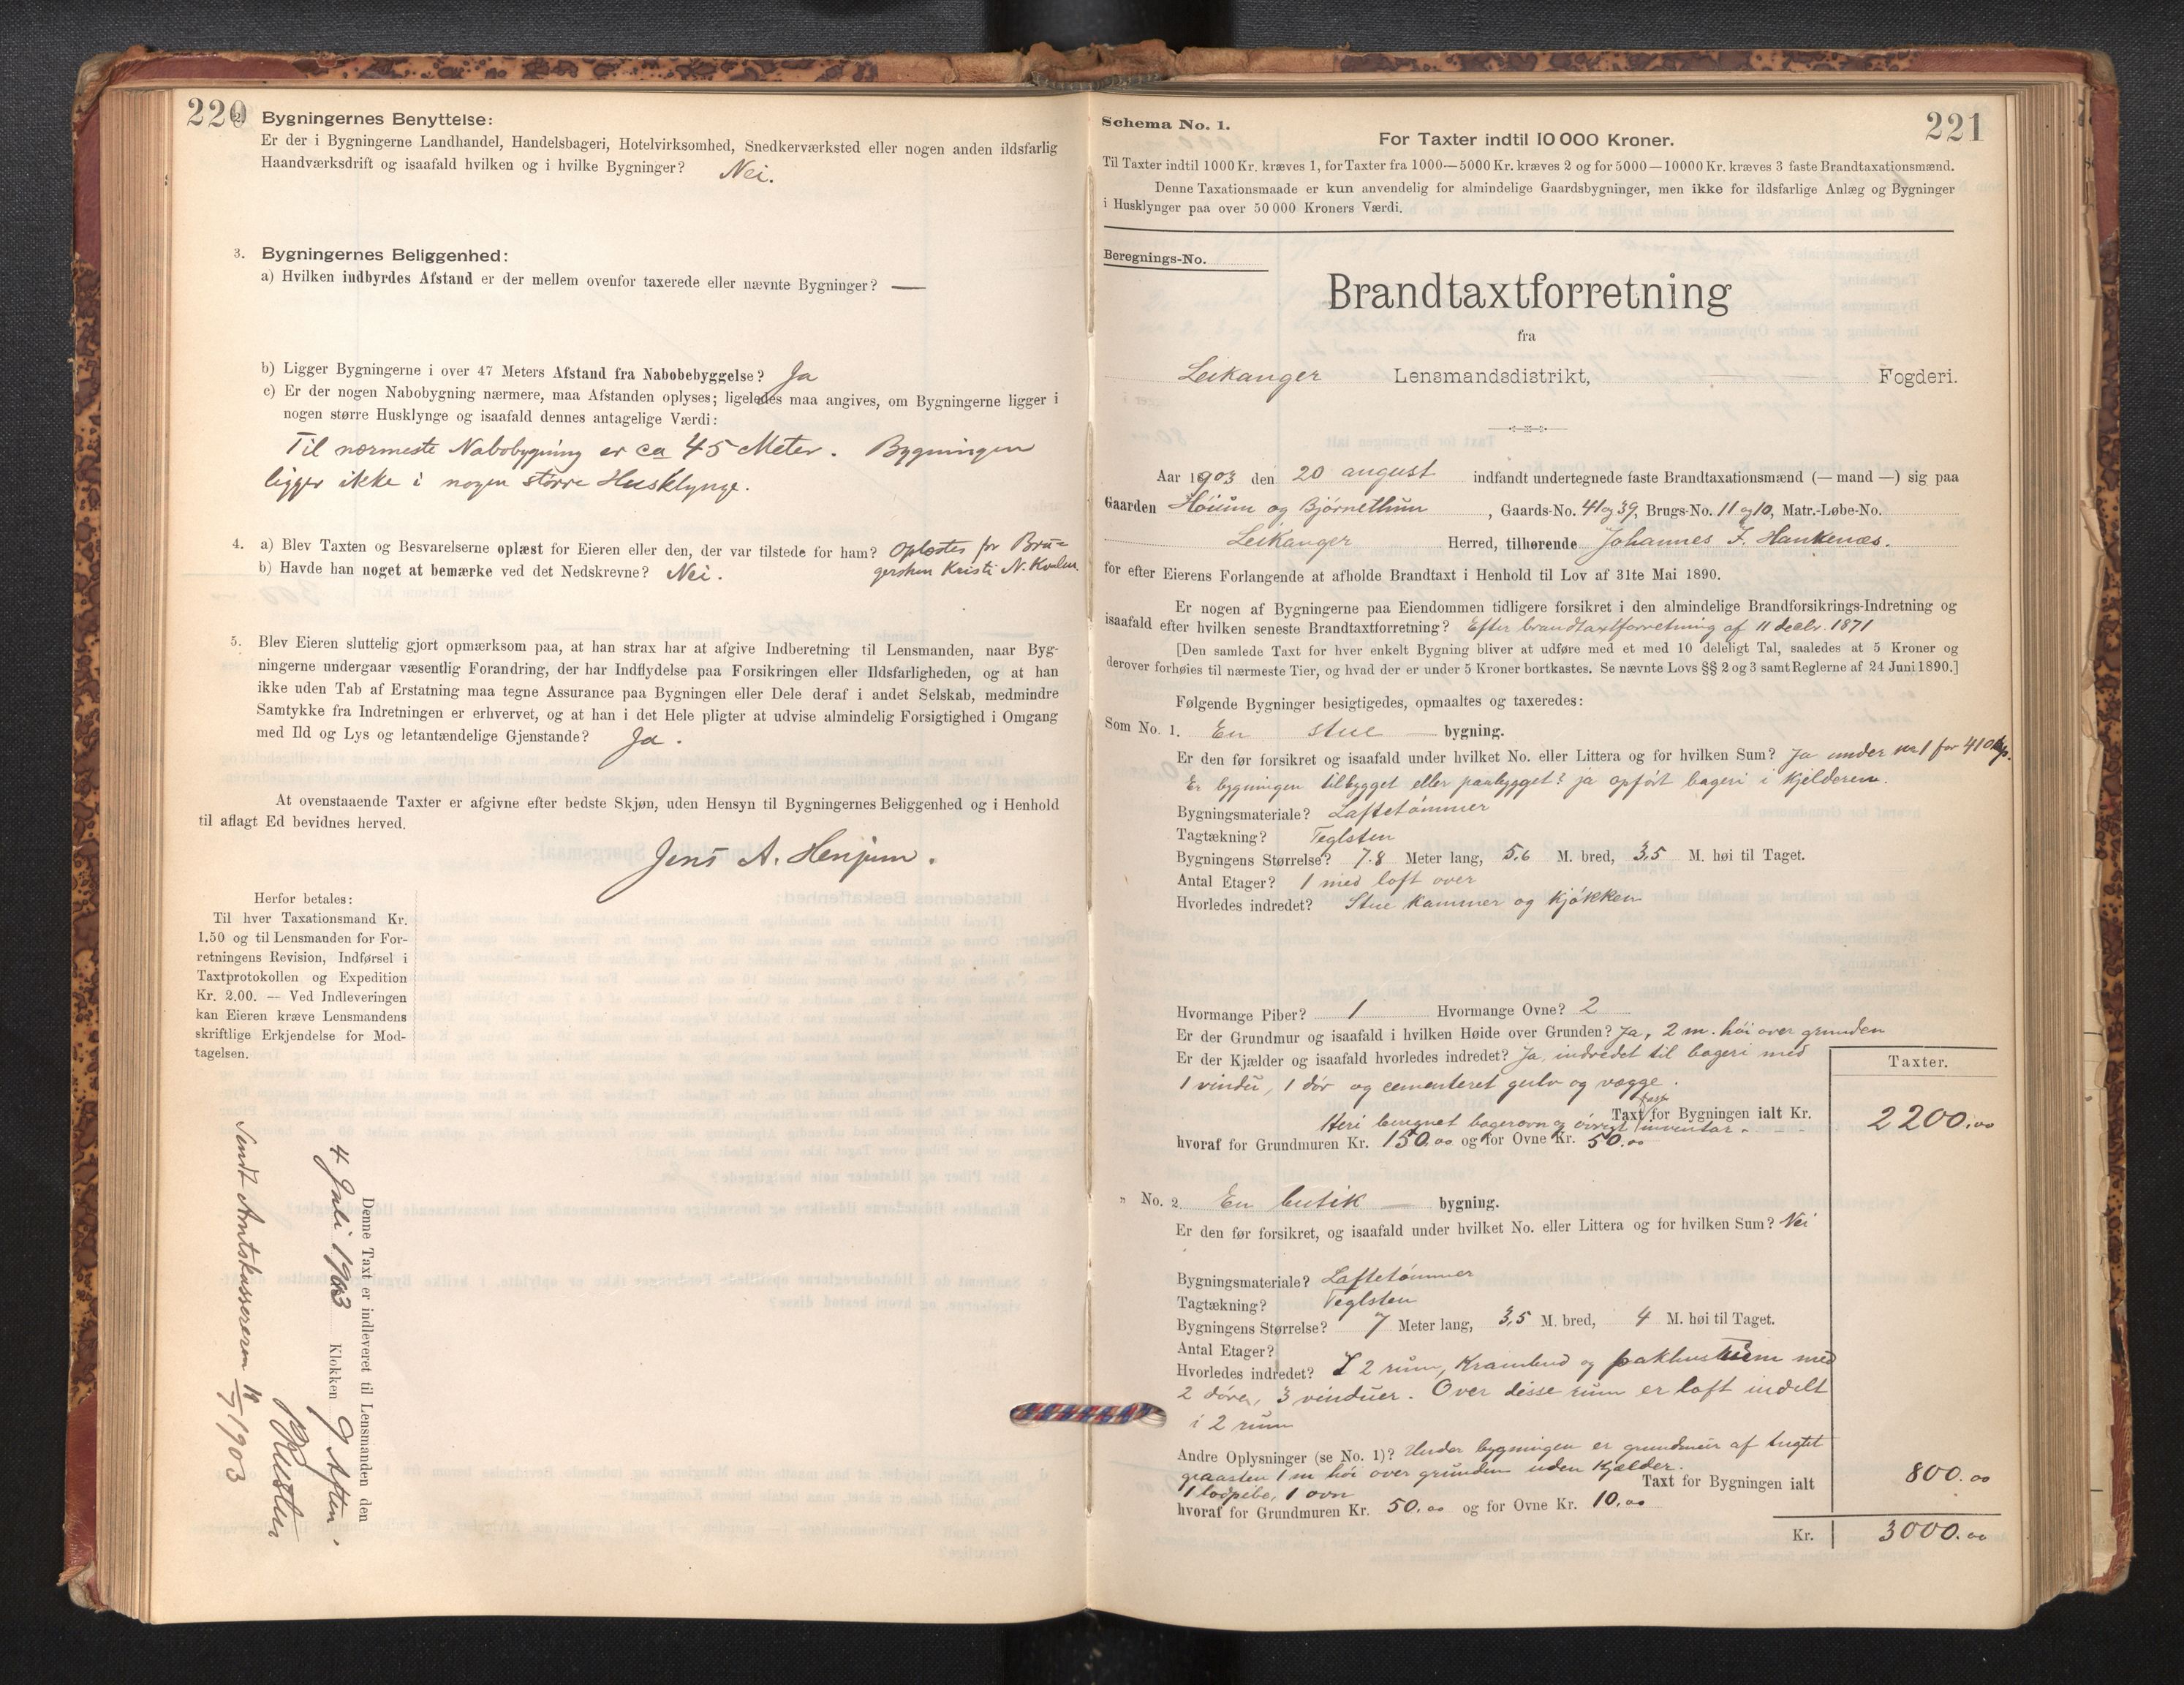 220
2. Bygningernes Benyttelse:
Er der i Bygningerne Landhandel, Handelsbageri, Hotelvirksomhed, Snedkerværksted eller nogen anden ildsfarlig
Haandværksdrift og isaafald hvilken og i hvilke Bygninger? Nei.
3. Bygningernes Beliggenhed:
a) Hvilken indbyrdes Afstand er der mellem ovenfor taxerede eller nævnte Bygninger? —
b) Ligger Bygningerne i over 47 Meters Afstand fra Nabobebyggelse? Ja
c) Er der nogen Nabobygning nærmere, maa Afstanden oplyses; ligeledes maa angives, om Bygningerne ligger i
nogen større Husklynge og isaafald dennes antagelige Værdi:
Til nærmeste Nabobygning er ca 45 Meter. Bygningen
ligger ikke i nogen större Husklynge.
4. a) Blev Taxten og Besvarelserne oplæst for Eieren eller den, der var tilstede for ham? Oplæstes for Bru=
gersken Kristi N. Kvalen
b) Havde han noget at bemærke ved det Nedskrevne? Nei.
5. Blev Eieren sluttelig gjort opmærksom paa, at han strax har at afgive Indberetning til Lensmanden, naar Byg-
ningerne undergaar væsentlig Forandring, der har Indflydelse paa Forsikringen eller Ildsfarligheden, og at han
ikke uden Tab af Erstatning maa tegne Assurance paa Bygningen eller Dele deraf i andet Selskab, medmindre
Samtykke fra Indretningen er erhvervet, og at han i det Hele pligter at udvise almindelig Forsigtighed i Omgang
med Ild og Lys og letantændelige Gjenstande? Ja.
At ovenstaaende Taxter er afgivne efter bedste Skjøn, uden Hensyn til Bygningernes Beliggenhed og i Henhold
til aflagt Ed bevidnes herved.
Jens A. Henjum.
Herfor betales:
Til hver Taxationsmand Kr.
1.50 og til Lensmanden for For-
retningens Revision, Indførsel i
Taxtprotokollen og Expedition
Kr. 2.00. — Ved Indleveringen
kan Eieren kræve Lensmandens
skriftlige Erkjendelse for Mod-
tagelsen.
Denne Taxt er indleveret til Lensmanden den
4 Juli 1903 Klokken 9 Aften.
Sendt Amtskassereren 1903
221
Schema No. 1.
For Taxter indtil 10 000 Kroner.
Til Taxter indtil 1000 Kr. kræves 1, for Taxter fra 1000—5000 Kr. kræves 2 og for 5000—10000 Kr. kræves 3 faste Brandtaxationsmænd.
Denne Taxationsmaade er kun anvendelig for almindelige Gaardsbygninger, men ikke for ildsfarlige Anlæg og Bygninger
i Husklynger paa over 50 000 Kroners Værdi.
Beregnings-No.
Brandtaxtforretning
fra
Leikanger Lensmandsdistrikt, Fogderi.
Aar 1903 den 20 august indfandt undertegnede faste Brandtaxationsmænd (— mand —) sig paa
Gaarden Höium og Björnethun, Gaards-No. 41 og 39, Brugs-No. 11 og 10, Matr.-Løbe-No.
Leikanger Herred, tilhørende Johannes J. Hankenæs.
for efter Eierens Forlangende at afholde Brandtaxt i Henhold til Lov af 31te Mai 1890.
Er nogen af Bygningerne paa Eiendommen tidligere forsikret i den almindelige Brandforsikrings-Indretning og
isaafald efter hvilken seneste Brandtaxtforretning? Efter brandtaxtforretning af 11 decbr. 1871
[Den samlede Taxt for hver enkelt Bygning bliver at udføre med et med 10 deleligt Tal, saaledes at 5 Kroner og
derover forhøies til nærmeste Tier, og hvad der er under 5 Kroner bortkastes. Se nævnte Lovs §§ 2 og 3 samt Reglerne af 24 Juni 1890.]
Følgende Bygninger besigtigedes, opmaaltes og taxeredes:
Som No. 1. En stue — bygning.
Er den før forsikret og isaafald under hvilket No. eller Littera og for hvilken Sum? Ja under nr 1 for 410
Er bygningen tilbygget eller paabygget? ja opfört bageri i Kjelderen.
Bygningsmateriale? Laftetömmer
Tagtækning? Teglsten
Bygningens Størrelse? 7.8 Meter lang, 5,6 M. bred, 3,5 M. høi til Taget.
Antal Etager? 1 med loft over
Hvorledes indredet? Stue Kammer og Kjökken
Hvormange Piber? 1 Hvormange Ovne? 2
Er der Grundmur og isaafald i hvilken Høide over Grunden? Ja, 2 m. höi over grunden
Er der Kjælder og isaafald hvorledes indredet? Ja, indredet til bageri med
1 vindu, 1 dör og cementeret gulv og vægge.
Taxter.
Heri beregnet bagerovn og övrigt fast inventar.
Taxt for Bygningen ialt Kr. 2200.00
hvoraf for Grundmuren Kr. 150.00 og for Ovne Kr. 50.00
" No. 2. En butik — bygning.
Er den før forsikret, og isaafald under hvilket No. eller Littera og for hvilken Sum? Nei
Bygningsmateriale? Laftetömmer
Tagtækning? Teglsten
Bygningens Størrelse? 7 Meter lang, 3,5 M. bred, 4 M. høi til Taget.
Antal Etager?
Hvorledes indredet? I 2 rum, Krambud og pakhusrum med
2 döre, 3 vinduer. Over disse rum er loft indelt
i 2 rum
Andre Oplysninger (se No. 1)? Under bygningen er grundmur af hugtet
graasten 1 m höi over grunden uden Kjælder.
1 lodpibe, 1 ovn
Taxt for Bygningen ialt 800.00
hvoraf for Grundmuren Kr. 50.00 og for Ovne Kr. 10.00
Kr. 3000.00